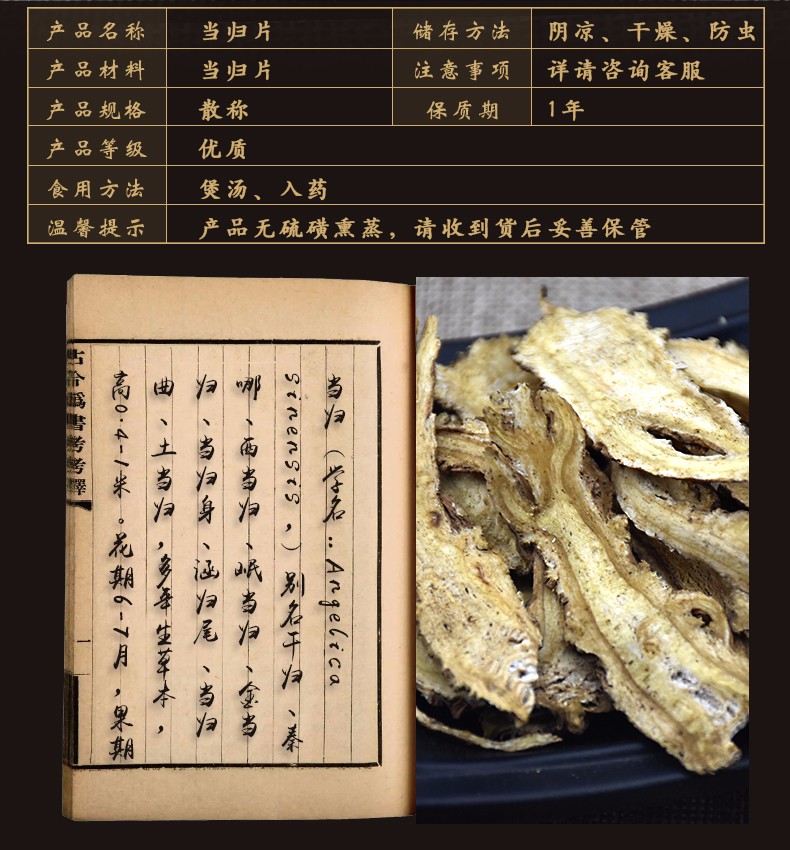 产品名称 当归片 储存方法 阴凉、干燥、防虫
产品材料 当归片 注意事项 详请咨询客服
产品规格 散称 保质期 1年
产品等级 优质
食用方法 煲汤、入药
温馨提示 产品无硫磺熏蒸，请收到货后妥善保管
当归（学名：Angelica
sinensis，）别名干归、秦
哪、西当归、岷当归、金当
归、当归身、涵归尾、当归
曲、土当归，多年生草本，
高0.4-1米。花期6-7月，果期
古今伪書考考釋
一